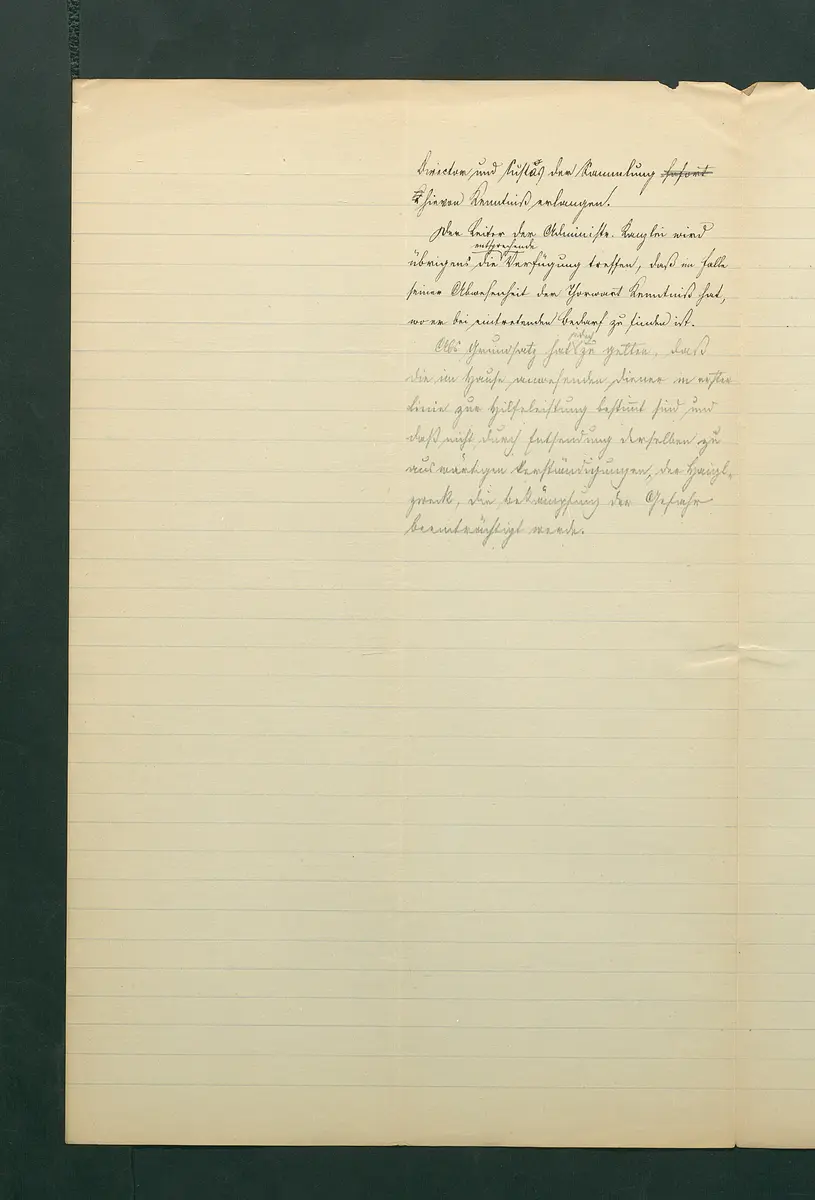 Director und Custos der Sammlung sofort
hievon Kenntniß erlangen.
Der Leiter der Administr. Kanzlei wird
entsprechende
übrigens die Verfügung treffen, daß im Falle
seiner Abwesenheit der Thorwart Kenntniß hat,
wo er bei eintretenden Bedarf zu finden ist.
jedoch
Als Grundsatz hat zu gelten, daß
die im Hause anwesenden Diener in erster
Linie zur Hilfeleistung bestimmt sind und
daß nicht durch Entsendung derselben zu
auswärtigen Verständigungen, der Haupt-
zweck, die Bekämpfung der Gefahr
beeinträchtigt werde.